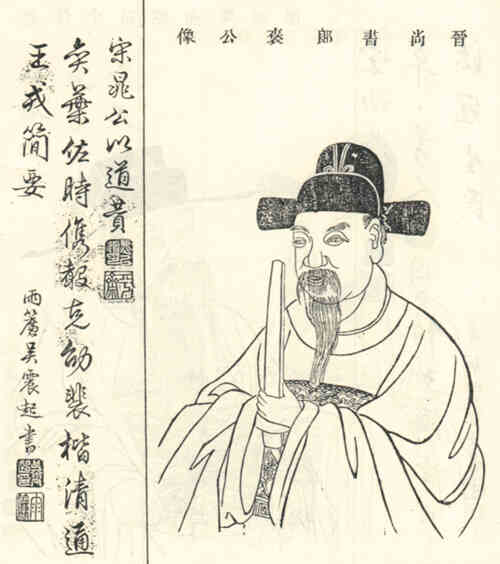 晉尚書郎公像
宋晁公以道贊
奕葉佐時儁毅克劭裴楷清通
王戎簡要
雨吳震起書